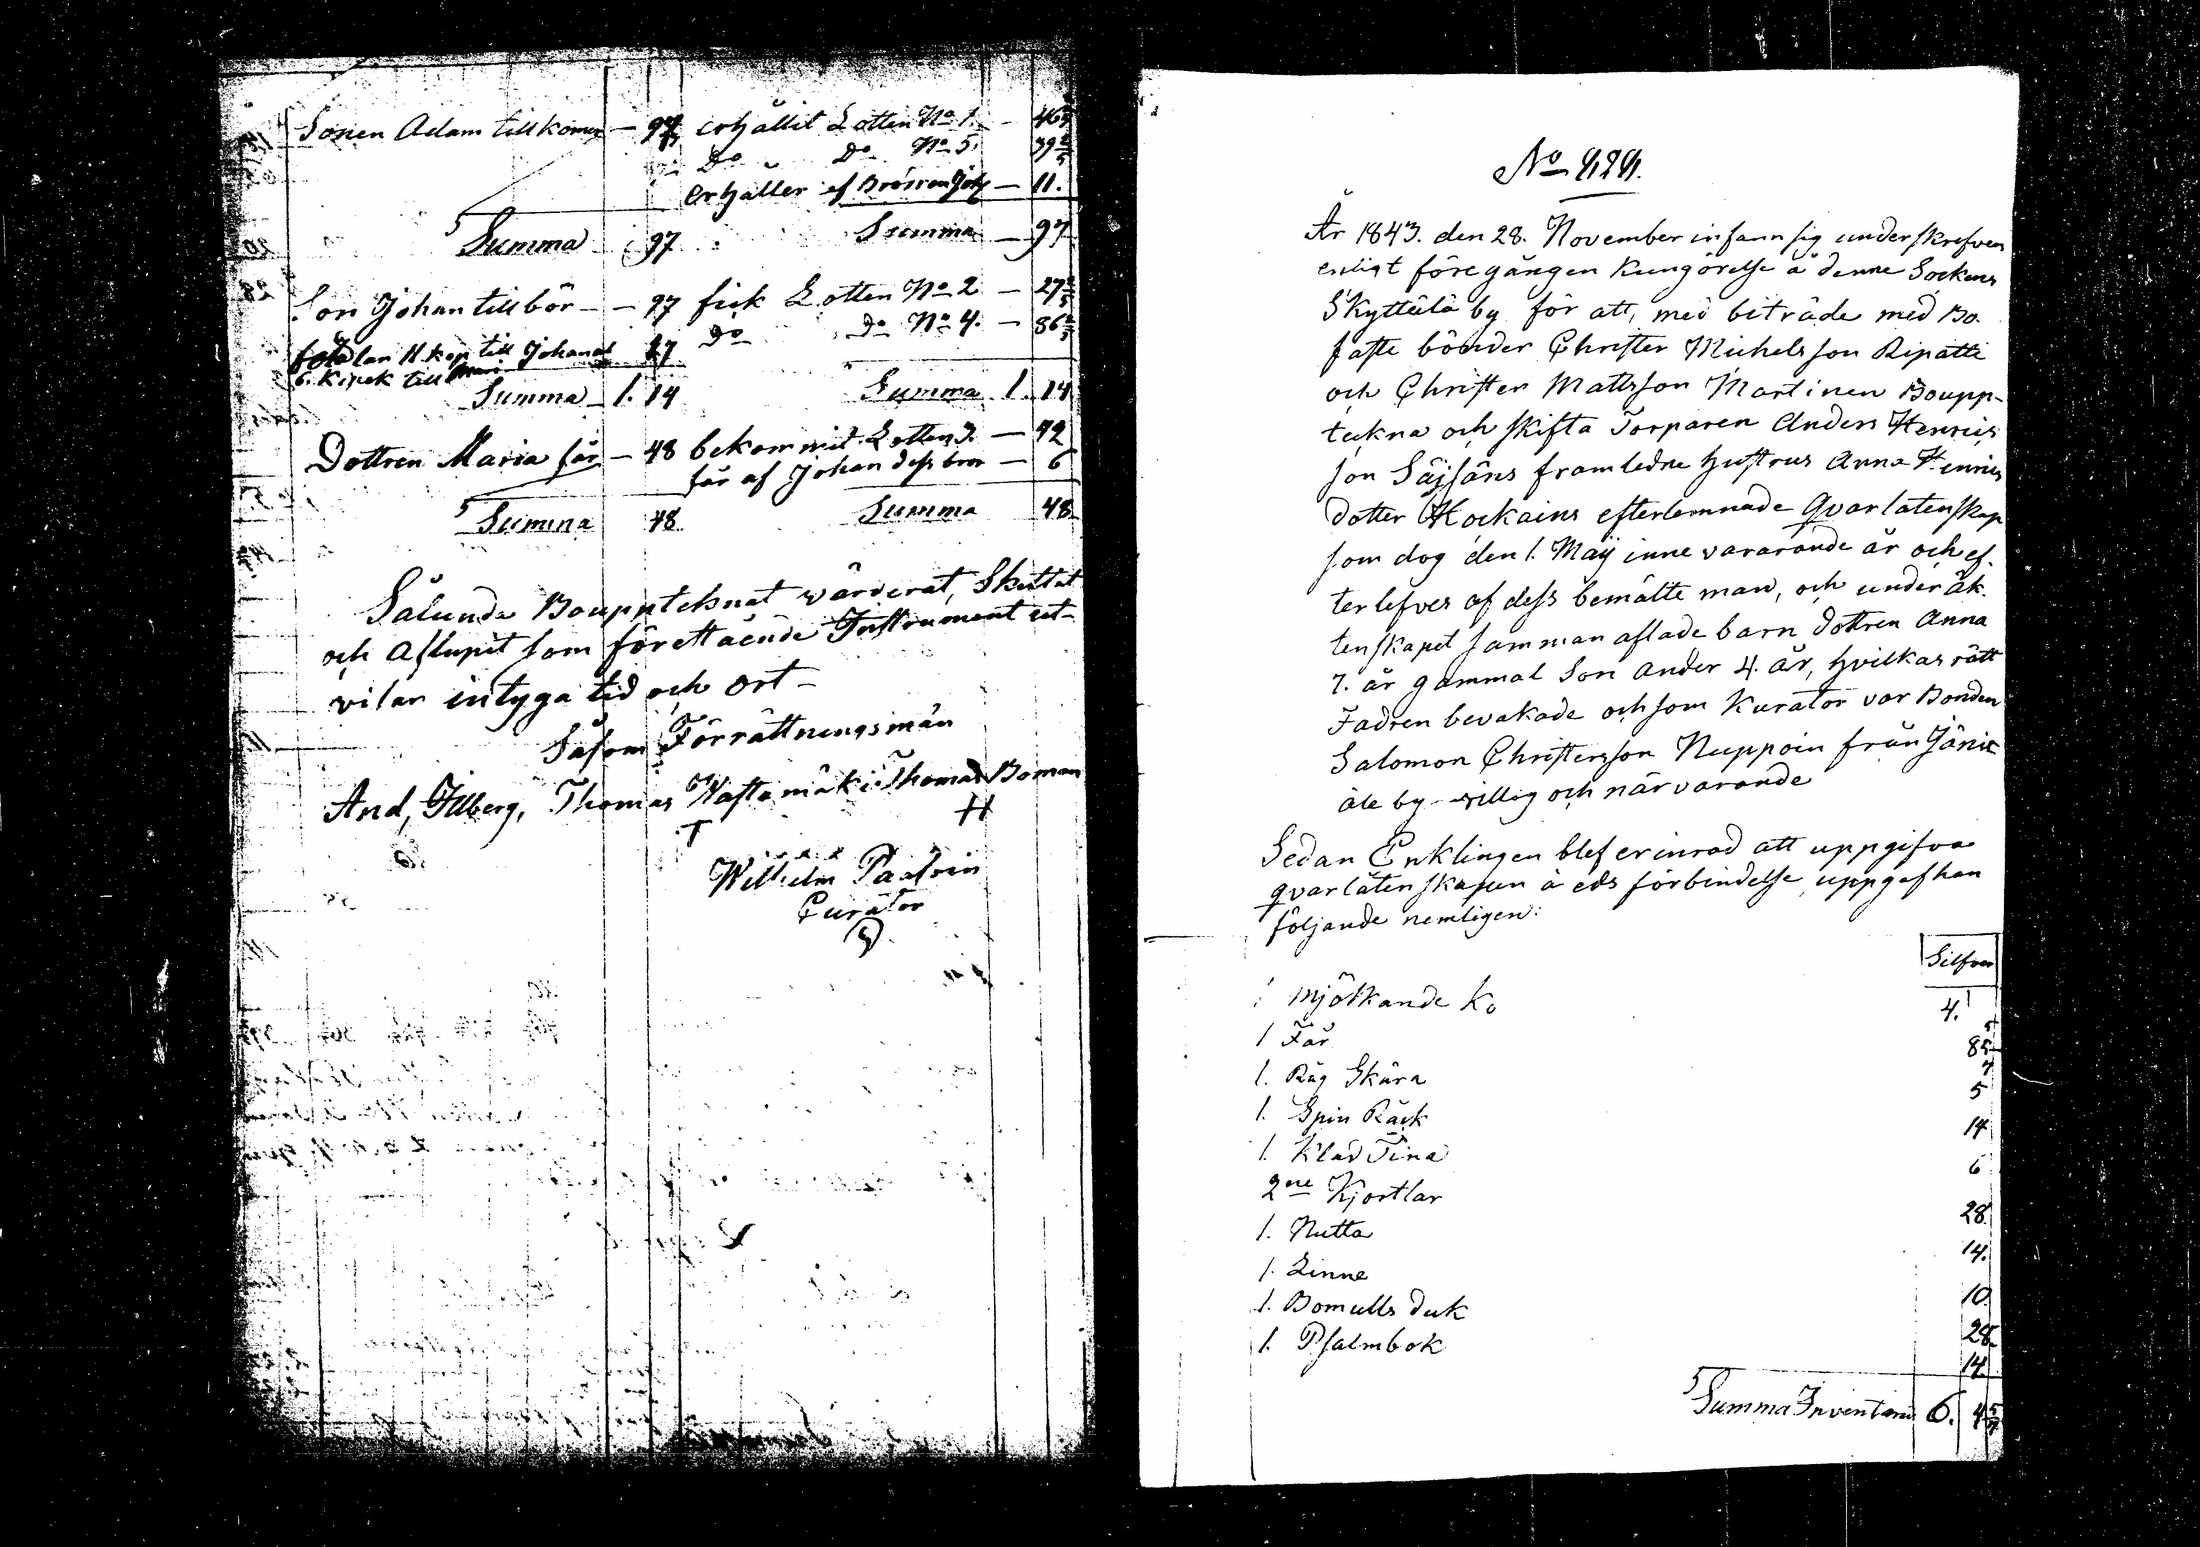 Sonen Adam tillkomer — 97 erhållit Lotten No 1. — 46
Do Do No 5. 39 2/5
erhåller af Brodren Joh — 11.
Summa 97 Summa — 97
Son Johan tillbör — 97 fick Lotten No 2 — 27 3/5
Do Do No 4. — 86 2/5
11 kop till
6. Kopek till 17
Summa 1. 14 Summa 1. 14
Dottren Maria får — 48 bekommit Lotten 3. — 42
får af Johan dess bror — 6
Summa 48 Summa 48
Sålunda Bouppteknat värderat, Skiftat
och Aflupit som förestående Instrument ut-
visar intyga tid och ort —
Såsom Förrättningsmän
And, Illberg, Thomas Thomas Boman
Wilhelm
Curator
No 424.
År 1843. den 28. November infann sig underskrefven
enligt föregången Kungörelse å denne Sockens
Skyttälä by för att, med biträde med Bo
faste bönder Christer Michelsson Ripatti
och Christer Mattsson Martinen Boupp-
tekna och skifta Torparen Anders Henrics
son Säjsäns framledne hustrus Anna Henrics
dotter Hockains efterlemnade Qvarlåtenskap
som dog den 1. Maij innevarande år och ef-
terlefves af dess bemälte man, och under äk-
tenskapet samman aflade barn dottren Anna
7. år gammal Son Ander 4. år, hvilkas rätt
Fadren bevakade och som Kurator var Bonden
Salomon Christersson Nuppoin från
by villig och närvarande
Sedan Enklingen blef erinrad att uppgifva
qvarlåtenskapen å eds förbindelse uppgaf han
följande nemligen:
Silfver
1 Mjölkande Ko 4.
1 Får 85 5/7
1. Råg Skära 5
1. Spin Råck 14
1. Kläd Tina 6
2ne Kjortlar 28
1. Nutta 14.
1. Linne 10.
1. Bomulls duk 28.
1. Psalmbok 14.
Summa Inventarie 6. 4 5/7